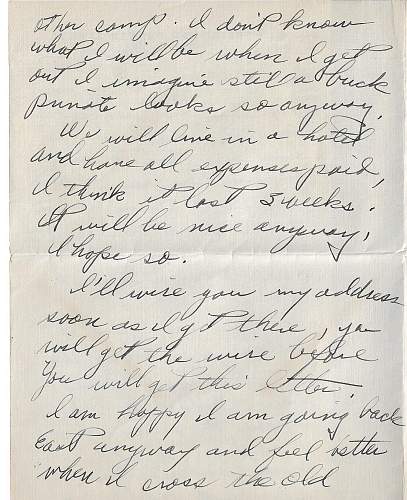 other camp. I don't know
what I will be when I get
out I imagine still a buck
private looks so anyway.
We will live in a hotel
and have all expenses paid,
I think it last 5 weeks.
It will be nice anyway,
I hope so.
I'll wire you my address
soon as I get there, you
will get the wire before
You will get this letter.
I am happy I am going back
East anyway and feel better
when I cross the old